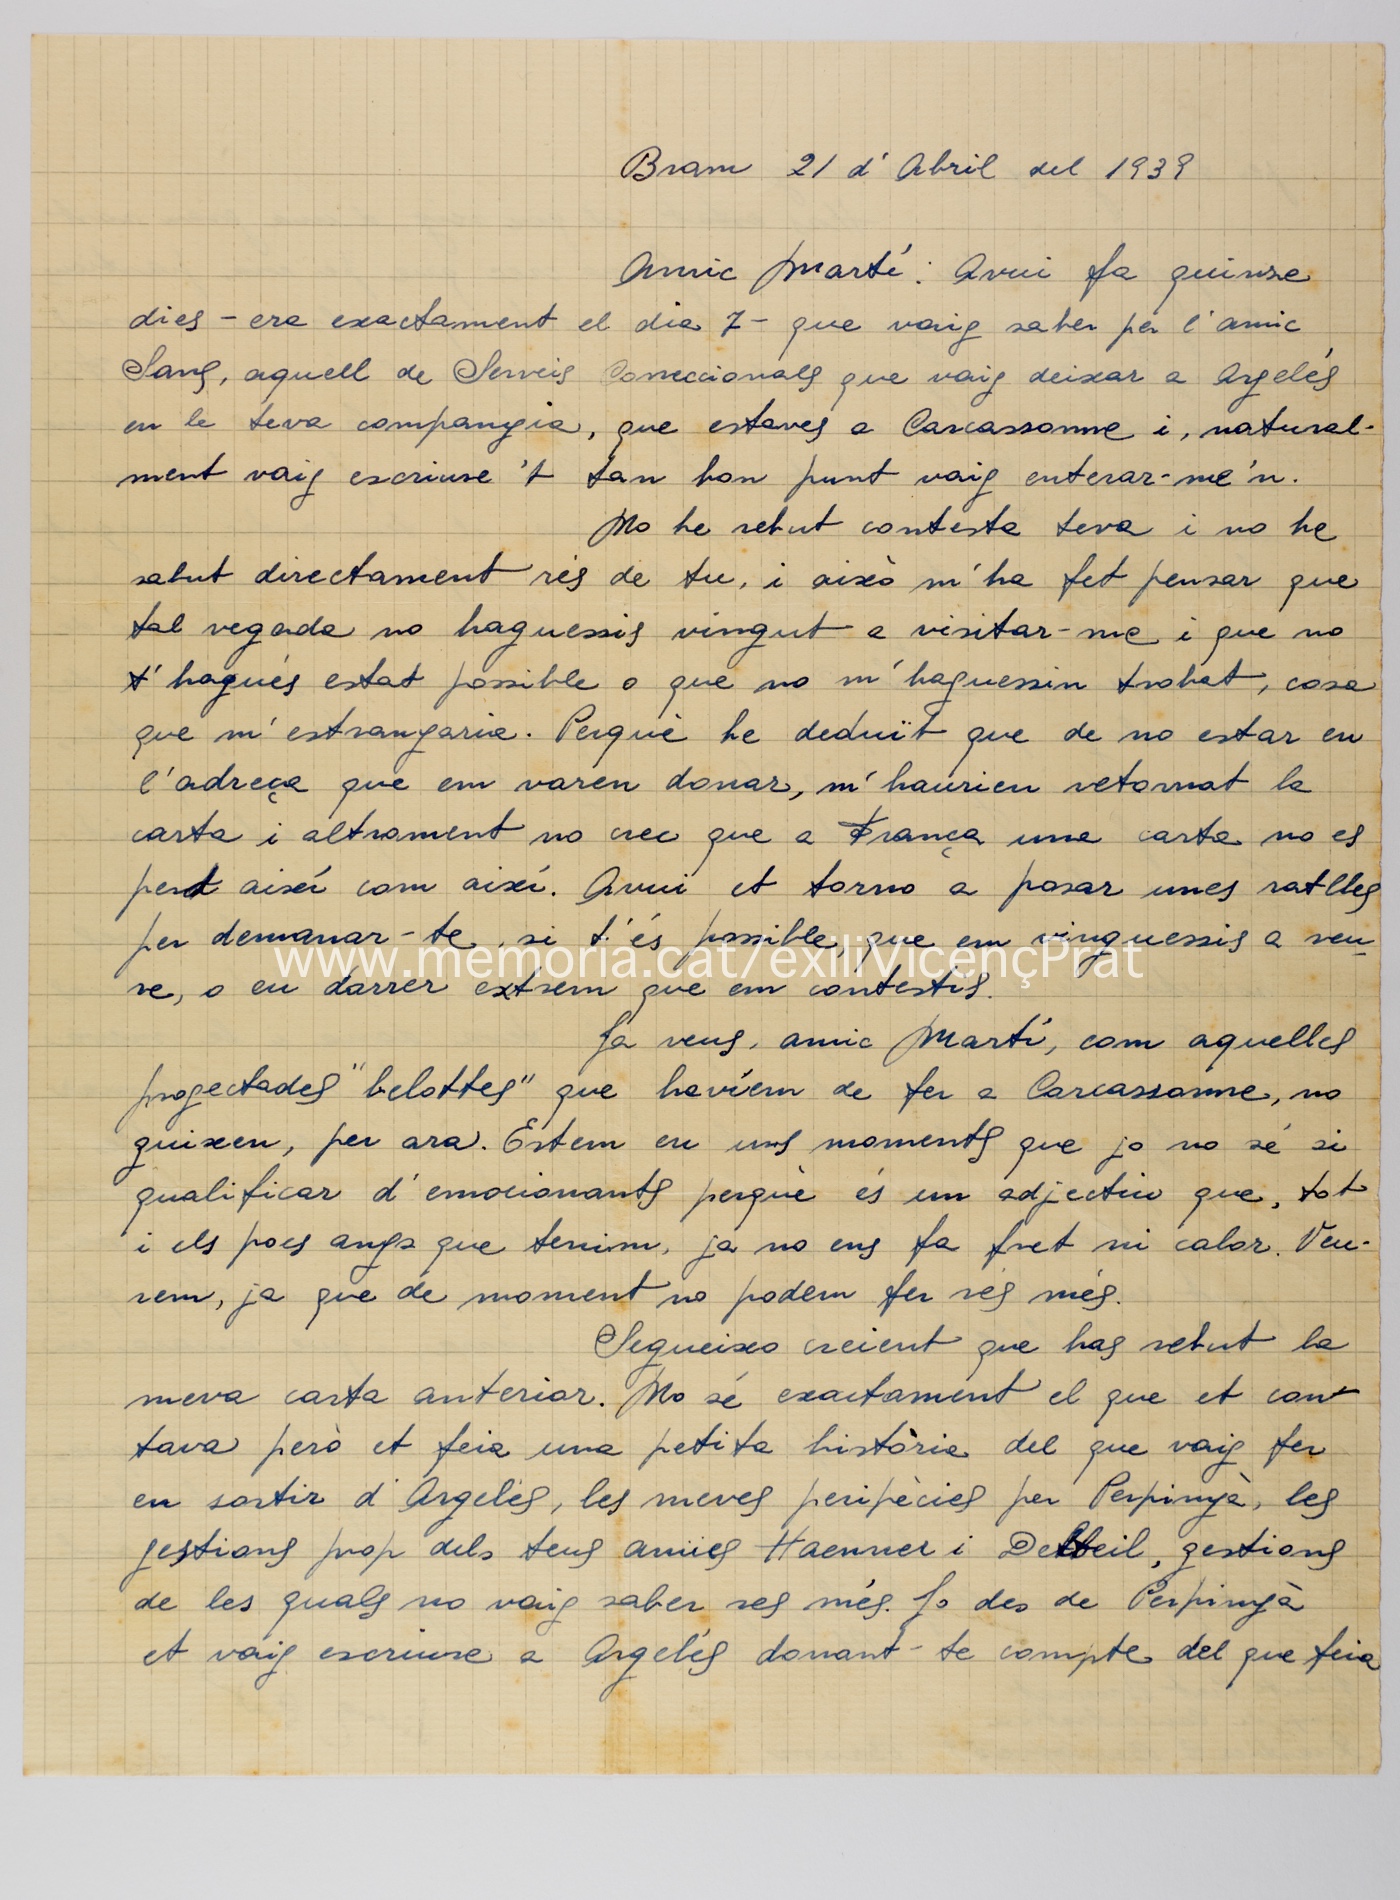 Bram 21 d'Abril del 1939
Amic Martí: Avui fa quinze
dies - era exactament el dia 7 - que vaig saber per l'amic
Sans, aquell de Serveis Correccionals que vaig deixar a Argelés
en la teva companyia, que estaves a Carcassonne i, natural-
ment vaig escriure't tan bon punt vaig enterar-me'n.
No he rebut contesta teva i no he
sabut directament rés de tu, i això m'ha fet pensar que
tal vegada no haguessis vingut a visitar-me i que no
t'hagués estat possible o que no m'haguessin trobat, cosa
que m'estranyaria. Perquè he deduït que de no estar en
l'adreça que em varen donar, m'haurien retornat la
carta i altrament no crec que a França una carta no es
perd així com així. Avui et torno a posar unes ratlles
per demanar-te, si t'és possible, que em vinguessis a veu-
www.memoria.cat/exiliVicençPrat
re, o en darrer extrem que em contestis.
Ja veus, amic Martí, com aquelles
projectades "belottes" que havíem de fer a Carcassonne, no
quixen, per ara. Estem en uns moments que jo no sé si
qualificar d'emocionants perquè és un adjectiu que, tot
i els pocs anys que tenim, ja no ens fa fret ni calor. Veu-
rem, ja que de moment no podem fer rés més.
Segueixo creient que has rebut la
meva carta anterior. No sé exactament el que et con-
tava però et feia una petita història del que vaig fer
en sortir d'Argelés, les meves peripècies per Perpinyà, les
gestions prop dels teus amics Haenner i Delteil, gestions
de les quals no vaig saber res més. Jo des de Perpinyà
et vaig escriure a Argelés donant-te compte del que feia